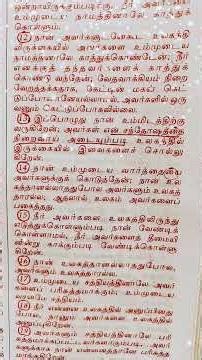 ஒன்றாயிருக்கும்படிக்கு, நீர் அவர்களை
உம்முடைய நாமத்தினாலே காத்துக்
கொள்ளும்.
12 நான் அவர்களுடனேகூட உலகத்தி
லிருக்கையில் அவர்களை உம்முடைய
நாமத்தினாலே காத்துக்கொண்டேன்; நீர்
எனக்குத் தந்தவர்களைக் காத்துக்
கொண்டு வந்தேன்; வேதவாக்கியம் நிறை
வேறத்தக்கதாக, கேட்டின் மகன் கெட்
டுப்போனானேயல்லாமல், அவர்களில் ஒரு
வனும் கெட்டுப்போகவில்லை.
13 இப்பொழுது நான் உம்மிடத்திற்கு
வருகிறேன்; அவர்கள் என் சந்தோஷத்தை
நிறைவாய் அடையும்படி உலகத்தில்
இருக்கையில் இவைகளைச் சொல்லு
கிறேன்.
14 நான் உம்முடைய வார்த்தையை
அவர்களுக்குக் கொடுத்தேன்; நான் உல
கத்தானல்லாததுபோல அவர்களும் உலகத்தா
ரல்ல; ஆதலால் உலகம் அவர்களைப்
பகைத்தது.
15 நீர் அவர்களை உலகத்திலிருந்து
எடுத்துக்கொள்ளும்படி நான் வேண்டிக்
கொள்ளாமல், நீர் அவர்களைத் தீமையி
னின்று காக்கும்படி வேண்டிக்கொள்ளு
கிறேன்.
16 நான் உலகத்தானல்லாததுபோல,
அவர்களும் உலகத்தாரல்ல.
17 உம்முடைய சத்தியத்தினாலே அவர்
களைப் பரிசுத்தமாக்கும்; உம்முடைய
வசனமே சத்தியம்.
18 நீர் என்னை உலகத்தில் அனுப்பினது
போல, நானும் அவர்களை உலகத்தில்
அனுப்புகிறேன்.
19 அவர்களும் சத்தியத்தினாலே பரி
சுத்தமாக்கப்பட்டவர்களாகும்படி, அவர்
களுக்காக நான் என்னைத்தானே பரிசுத்த